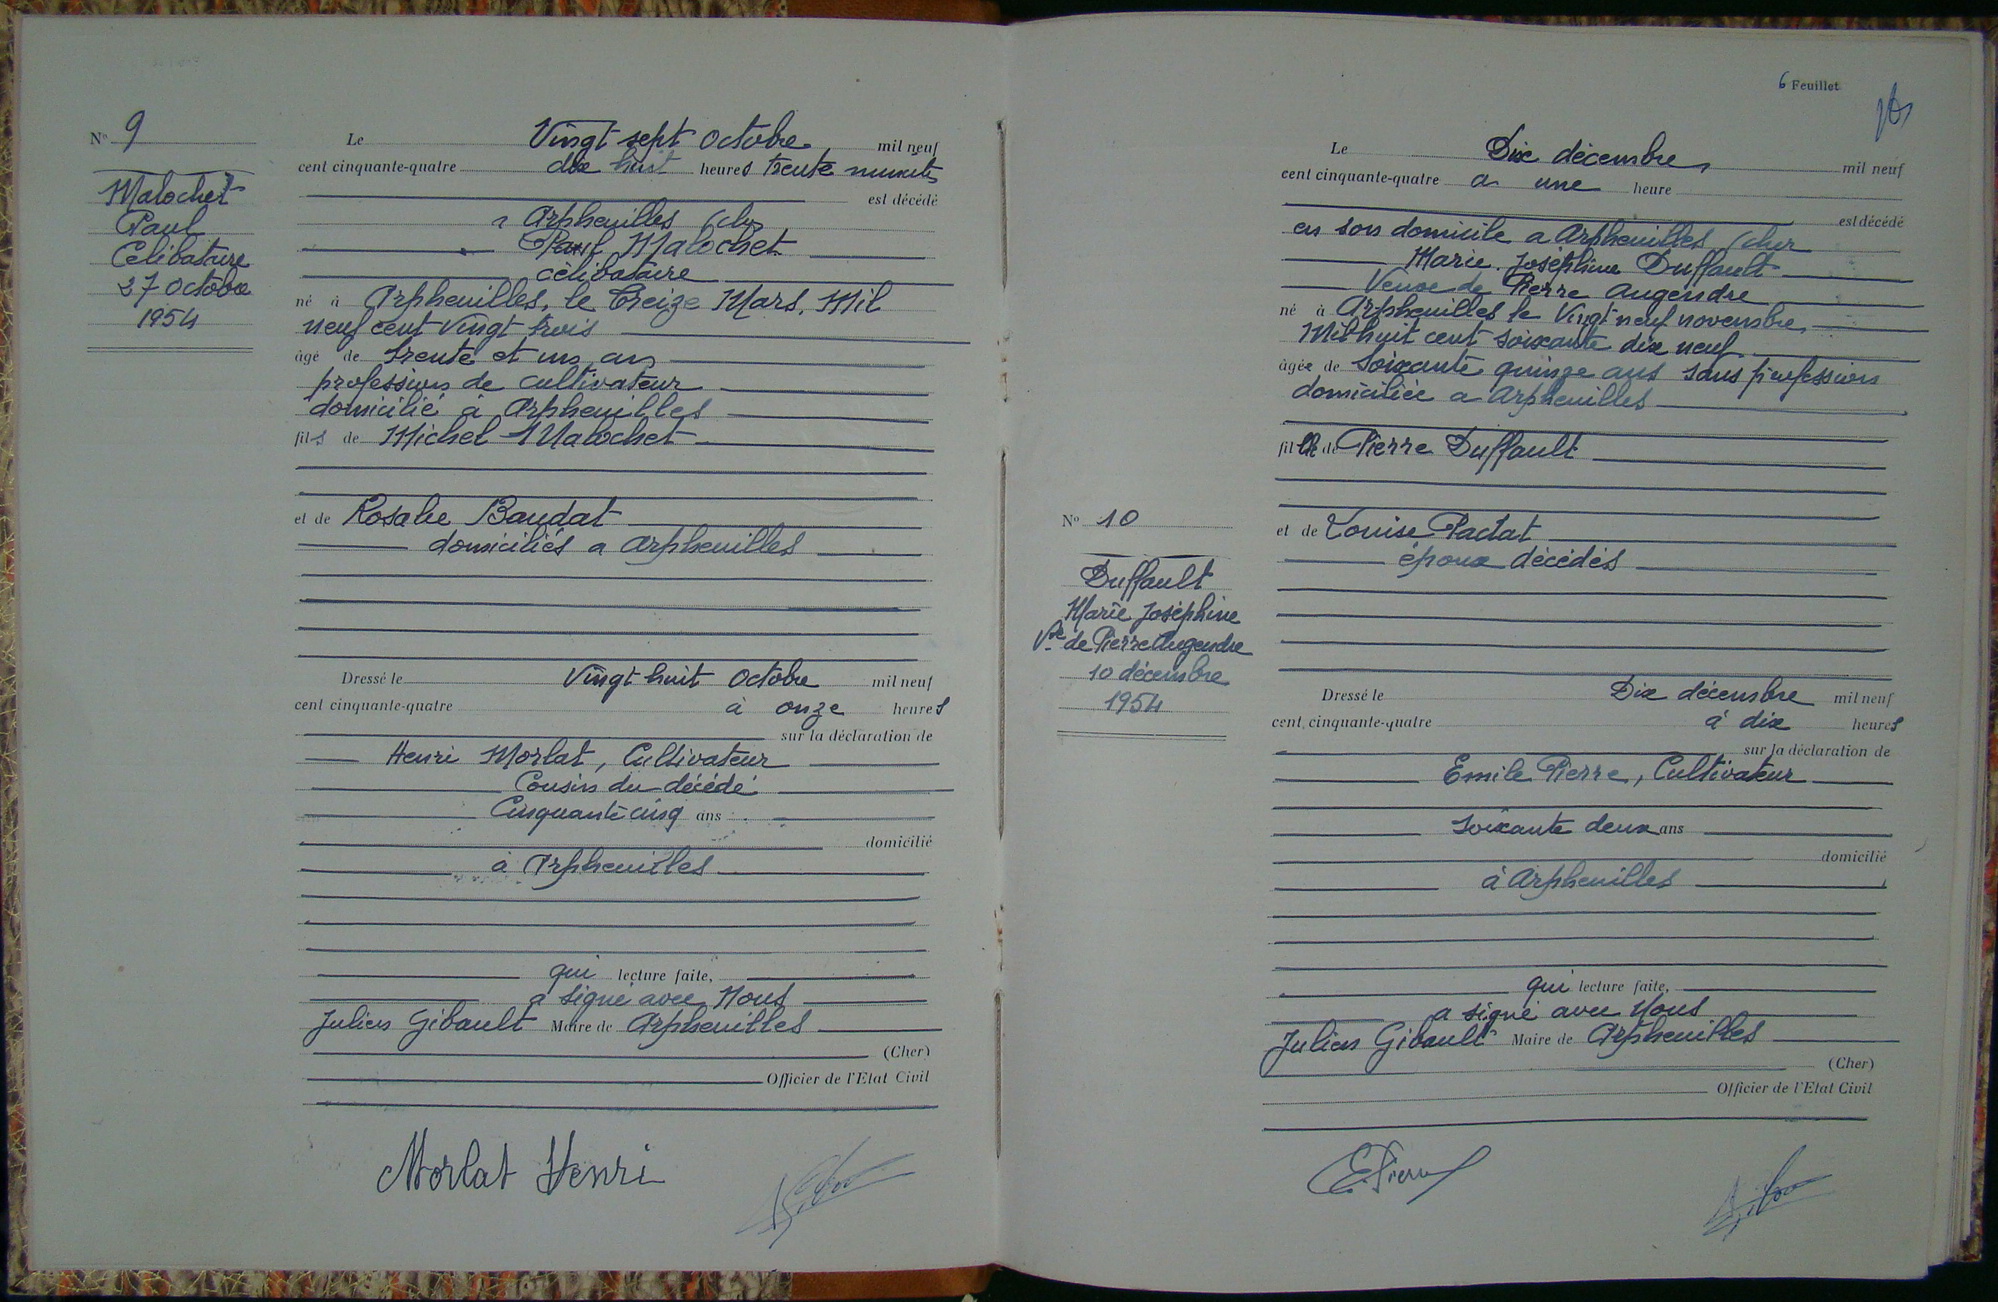 N° 9
Malochet
Paul
Célibataire
27 octobre
1954
Le Vingt sept Octobre mil neuf
cent cinquante-quatre dix huit heures trente minutes
est décédé
a Arpheuilles (cher
Paul Malochet
célibataire
né à Arpheuilles, le Treize Mars, Mil
neuf cent Vingt trois
âgé de trente et un an
profession de cultivateur
domicilié à Arpheuilles
fils de Michel Malochet
et de Rosalie Baudat
domiciliés a Arpheuilles
Dressé le Vingt huit Octobre mil neuf
cent cinquante-quatre à onze heures
sur la déclaration de
Henri Morlat, Cultivateur
Cousin du décédé
Cinquante cinq ans
domicilié
à Arpheuilles
qui lecture faite,
a signé avec Nous
Julien Gibault Maire de Arpheuilles
(Cher)
Officier de l'Etat Civil
Morlat Henri
6 Feuillet
N° 10
Duffault
Marie Joséphine
Vve de Pierre Augendre
10 décembre
1954
Le Dix décembre mil neuf
cent cinquante-quatre a une heure
est décédé
en son domicile a Arpheuilles (cher
Marie Joséphine Duffault
Veuve de Pierre Augendre
né à Arpheuilles le Vingt neuf novembre
Mil huit cent soixante dix neuf
âgée de Soixante quinze ans sans profession
domiciliée a Arpheuilles
fille de Pierre Duffault
et de Louise Pactat
époux décédés
Dressé le Dix décembre mil neuf
cent cinquante-quatre à dix heures
sur la déclaration de
Emile Pierre, Cultivateur
Soixante deux ans
domicilié
à Arpheuilles
qui lecture faite,
a signé avec Nous
Julien Gibault Maire de Arpheuilles
(Cher)
Officier de l'Etat Civil
E. Pierre